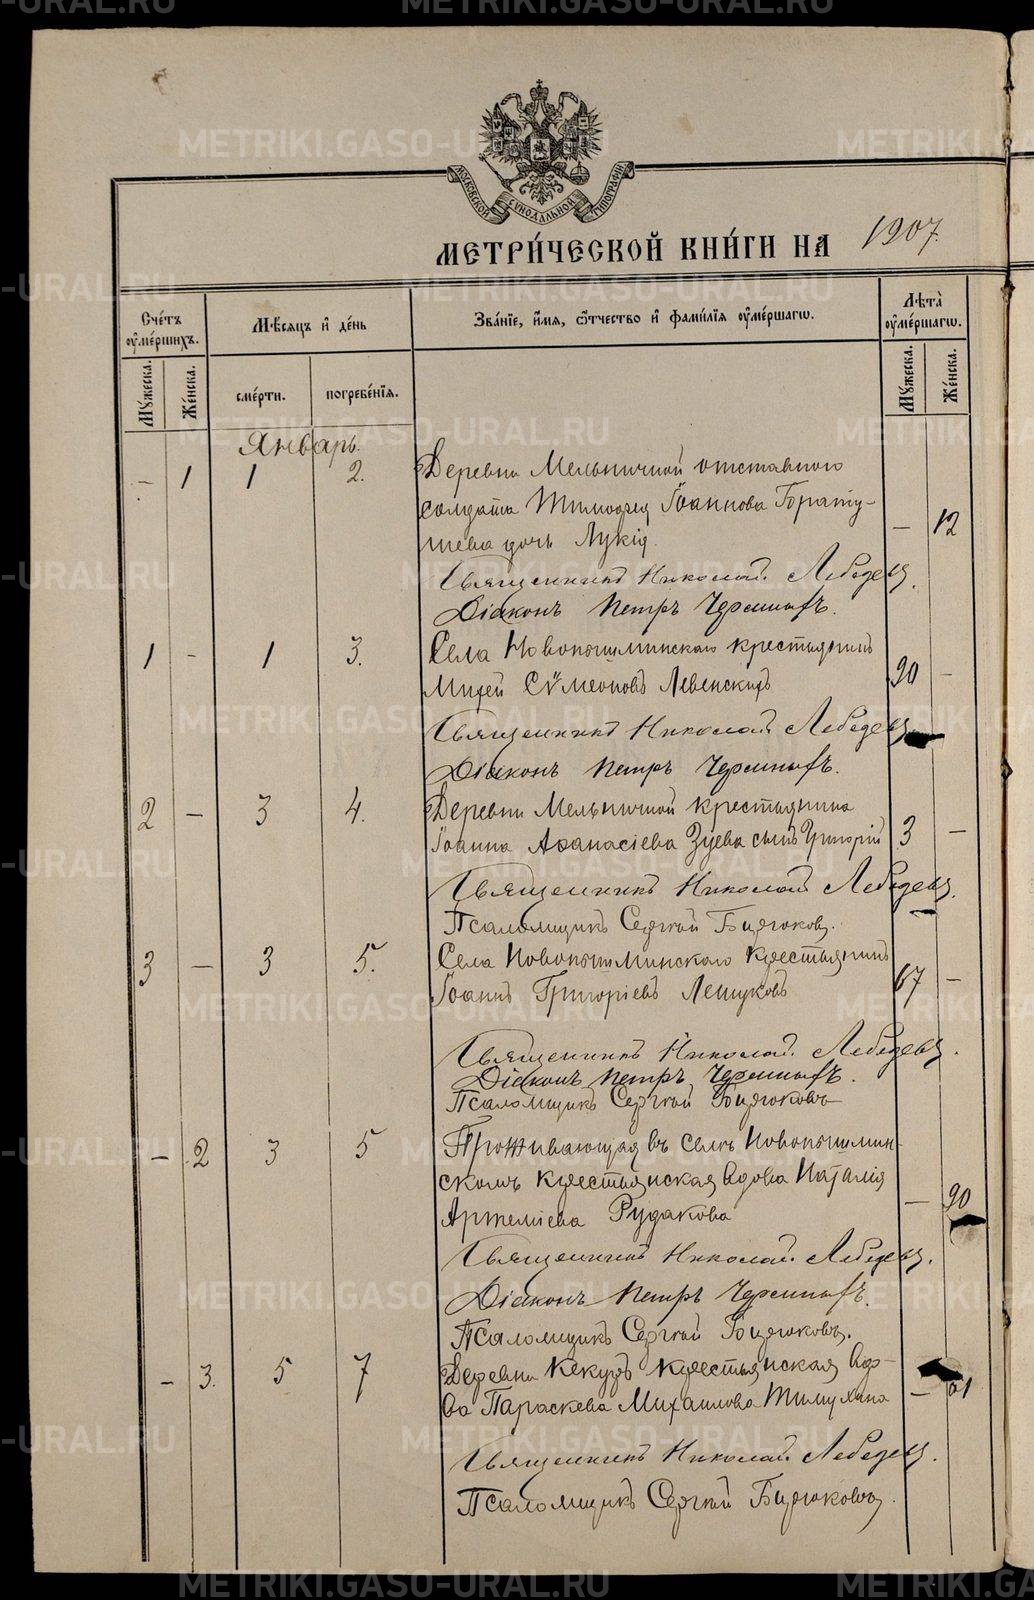 METRIKI.GASO-URAL.RU
МОСКОВСКОЙ СУНОДАЛЬНОЙ ТИПОГРАФІИ
МЕТРИ́ЧЕСКОЙ КНИ́ГИ НА 1907.
Сче́тъ ᲂу҆ме́ршихъ.
Мѣ́сяцъ и҆ де́нь
Зва́нїе, и҆́мя, ѻ҆́тчество и҆ фами́лїя ᲂу҆ме́ршагѡ.
Лѣта̀ ᲂу҆ме́ршагѡ.
Му́жеска.
Же́нска.
сме́рти.
погребе́нїя.
Му́жеска.
Же́нска.
Январь.
- 1 1 2. Деревни Мельничной отставного
солдата Тимоѳея Іоаннова
дочь Лукія. - 12
Священникъ Николай Лебедевъ.
Діаконъ Петръ
1 - 1 3. Села Новопышминскаго крестьянинъ
Михей Сѵмеоновъ Левенскихъ 90 -
Священникъ Николай Лебедевъ
Діаконъ Петръ
2 - 3 4. Деревни Мельничной крестьянина
Іоанна Аѳанасіева Зуева сынъ Григорій 3 -
Священникъ Николай Лебедевъ.
Псаломщикъ Сергій Бирюковъ.
3 - 3 5. Села Новопышминскаго крестьянинъ
Іоаннъ Григоріевъ Лещуковъ 67 -
Священникъ Николай Лебедевъ.
Діаконъ Петръ
Псаломщикъ Сергій Бирюковъ
- 2 3 5 Проживающая въ селѣ Новопышмин-
скомъ крестьянская вдова Наталія
Артеміева Рудакова - 90
Священникъ Николай Лебедевъ.
Діаконъ Петръ
Псаломщикъ Сергій Бирюковъ.
- 3. 5 7 Деревни Кекуръ крестьянская вдо-
ва Параскева Михаилова Тимухина - 61
Священникъ Николай Лебедевъ.
Псаломщикъ Сергій Бирюковъ.